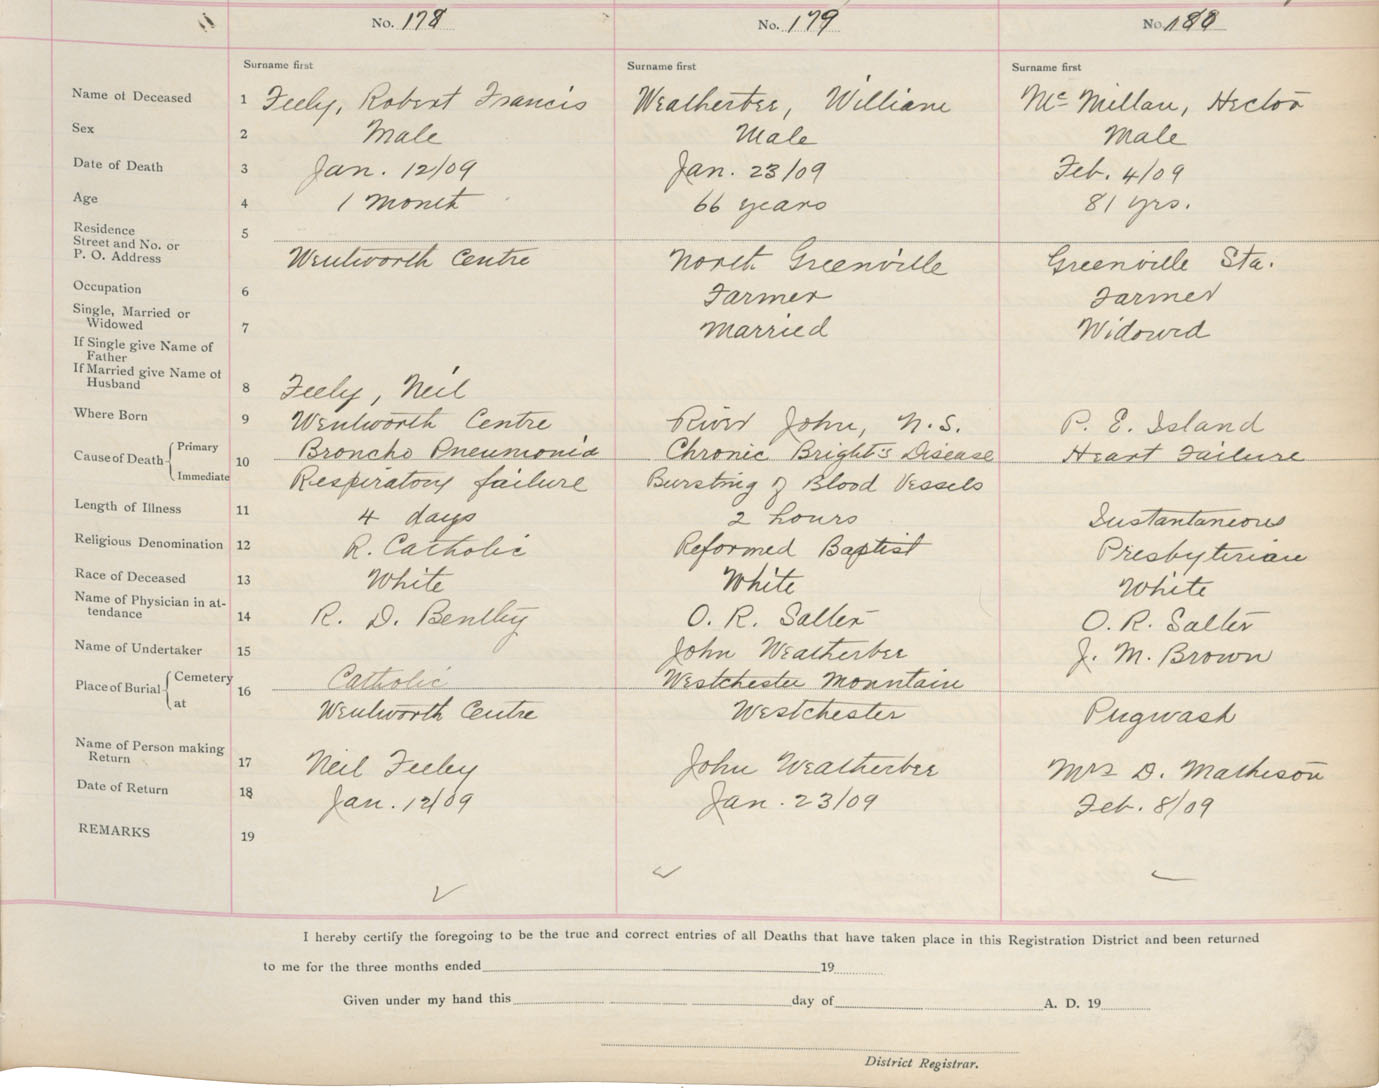 No. 178 No. 179 No. 180
Surname first Surname first Surname first
Name of Deceased 1 Feely, Robert Francis Weatherbee, William Mc Millan, Hector
Sex 2 Male Male Male
Date of Death 3 Jan. 12/09 Jan. 23/09 Feb. 4/09
Age 4 1 Month 66 years 81 yrs.
Residence 5
Street and No. or
P. O. Address Wentworth Centre North Greenville Greenville Sta.
Occupation 6 Farmer Farmer
Single, Married or
Widowed 7 Married Widowed
If Single give Name of
Father
If Married give Name of
Husband 8 Feely, Neil
Where Born 9 Wentworth Centre River John, N.S. P. E. Island
Cause of Death Primary 10 Broncho Pneumonia Chronic Bright's Disease Heart Failure
Immediate Respiratory failure Bursting of Blood Vessels
Length of Illness 11 4 days 2 hours Instantaneous
Religious Denomination 12 R. Catholic Reformed Baptist Presbyterian
Race of Deceased 13 White White White
Name of Physician in at-
tendance 14 R. D. Bentley O. R. Salter O. R. Salter
Name of Undertaker 15 John Weatherbee J. M. Brown
Place of Burial Cemetery 16 Catholic Westchester Mountain
at Wentworth Centre Westchester Pugwash
Name of Person making
Return 17 Neil Feeley John Weatherbee Mrs D. Matheson
Date of Return 18 Jan. 12/09 Jan. 23/09 Feb. 8/09
REMARKS 19
I hereby certify the foregoing to be the true and correct entries of all Deaths that have taken place in this Registration District and been returned
to me for the three months ended 19
Given under my hand this day of A. D. 19
District Registrar.